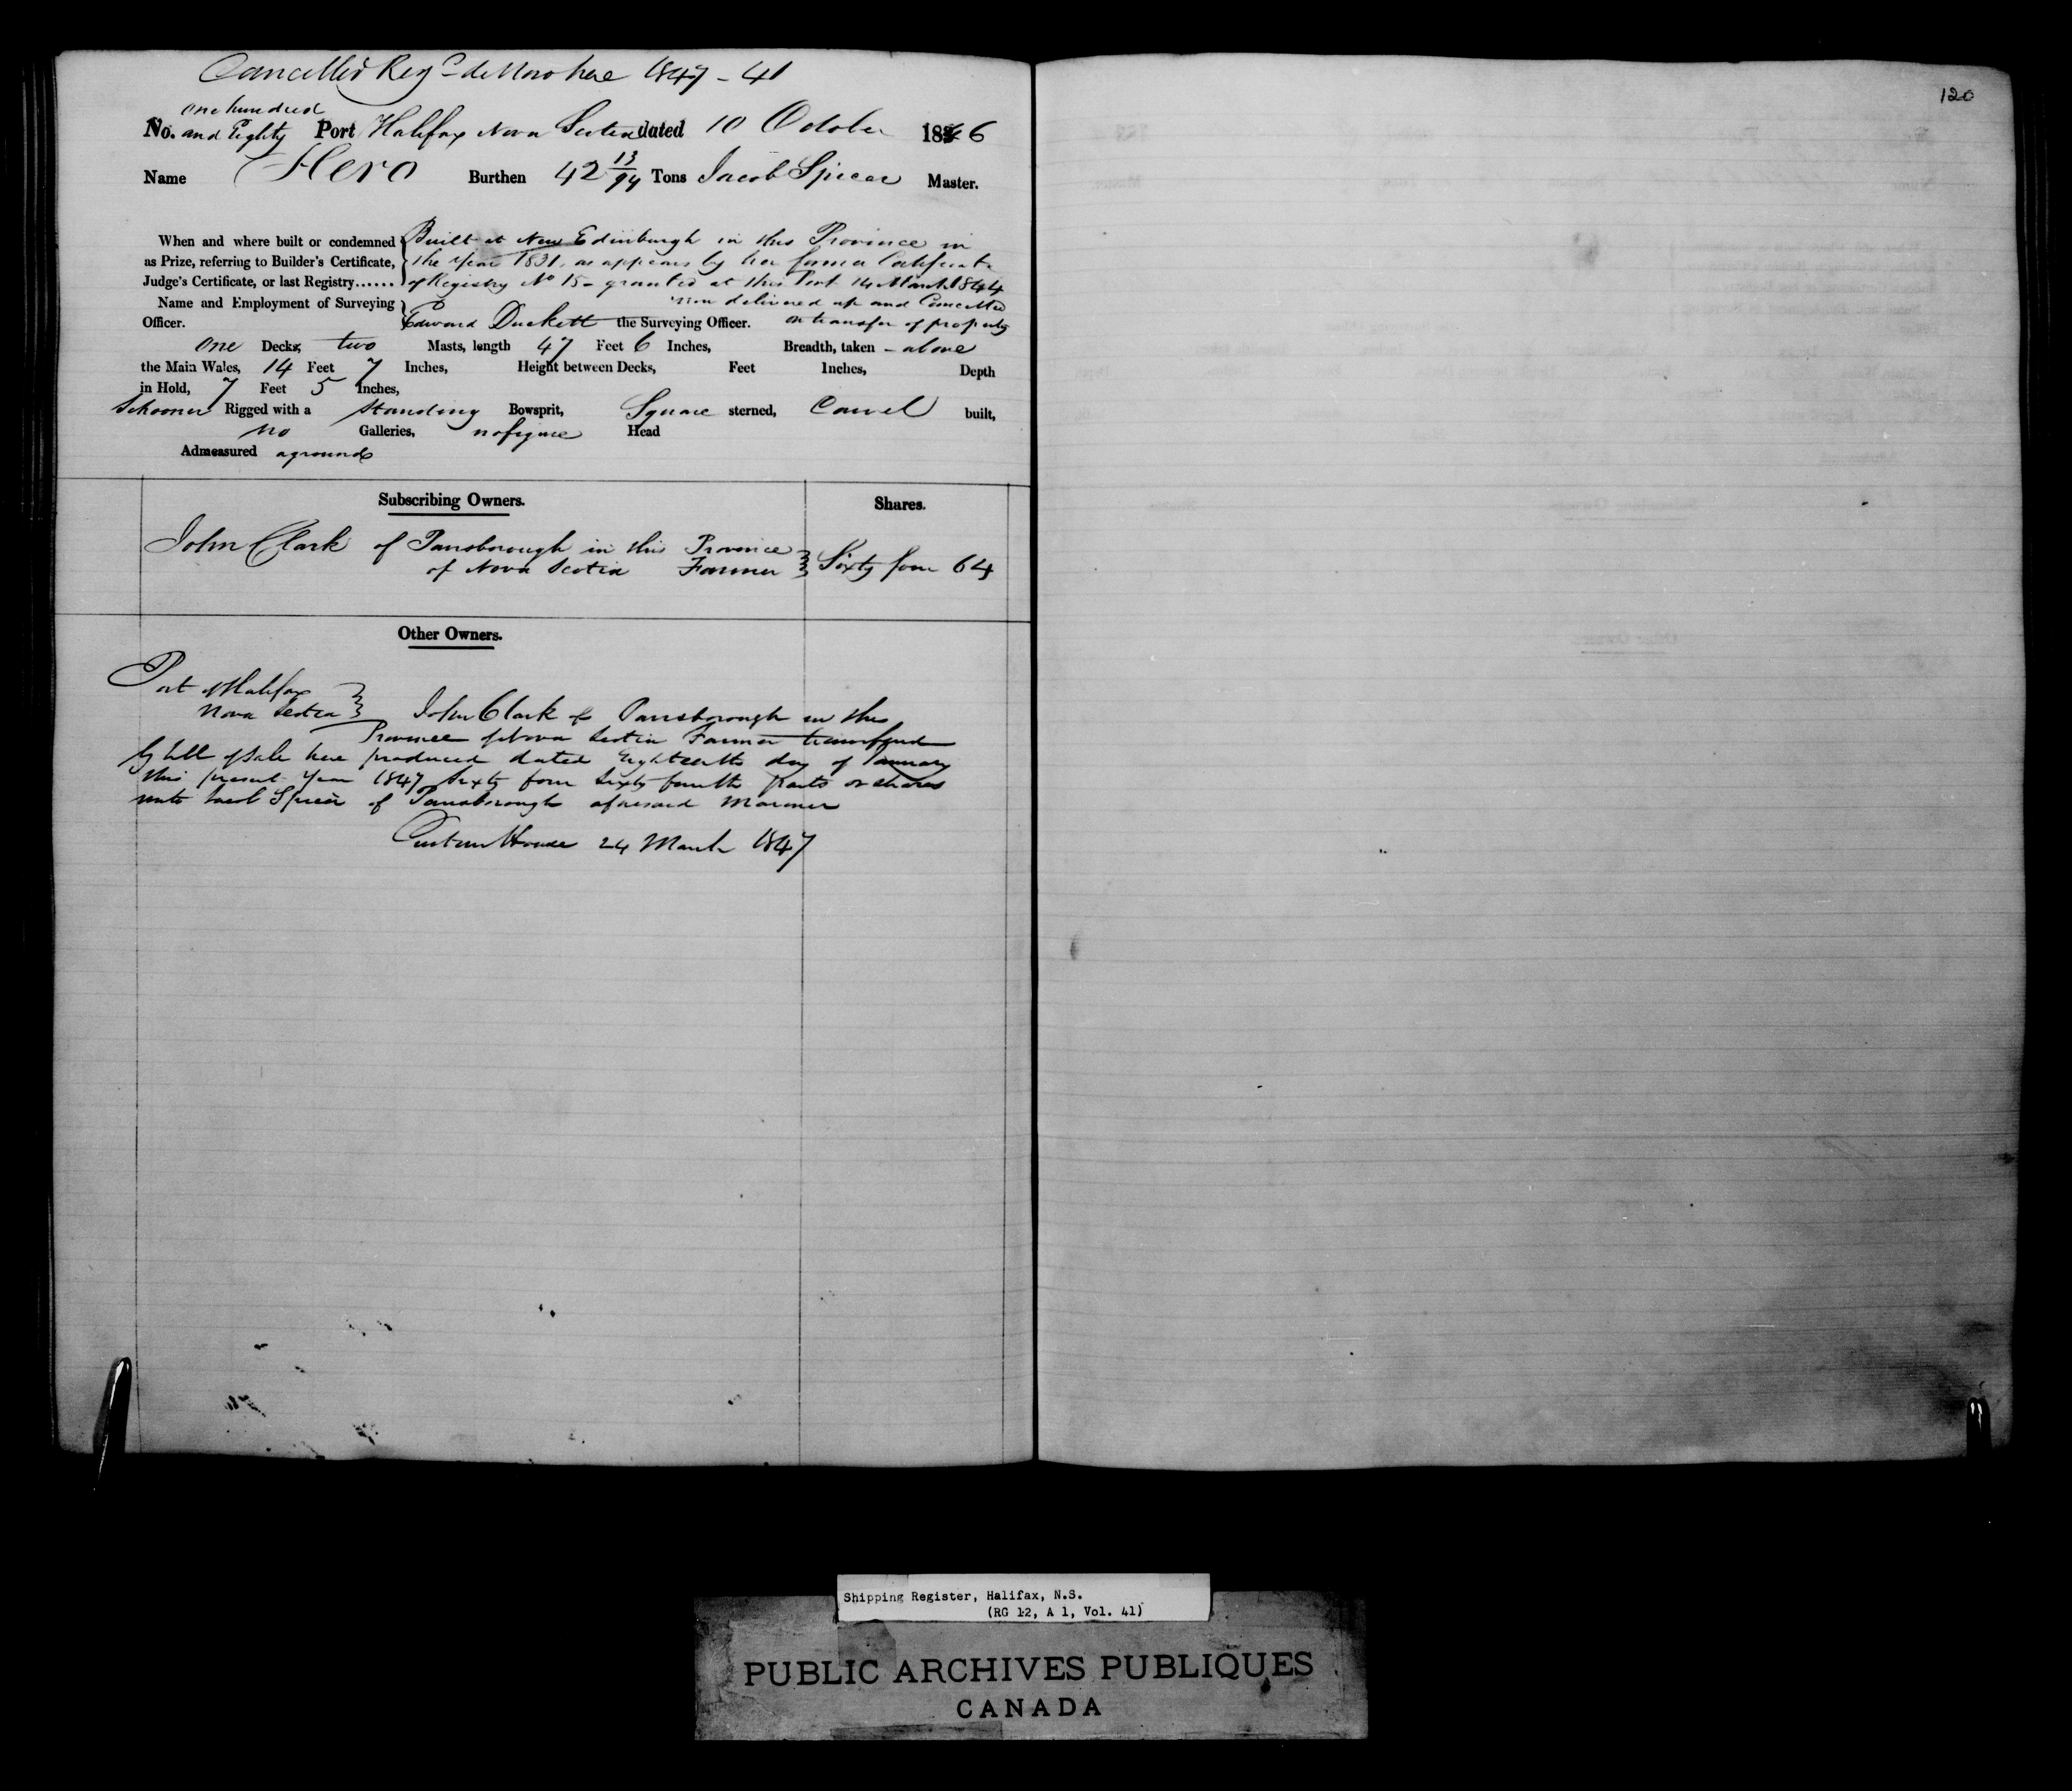 Cancelled Regd de Novo here 1847 - 41
one hundred
No. and Eighty Port Halifax Nova Scotia dated 10 October 1846
Name Hero Burthen 42 13/94 Tons Jacob Spicer Master.
When and where built or condemned { Built at New Edinburgh in this Province in
as Prize, referring to Builder's Certificate, { the Year 1831, as appears by her former Certificate
Judge's Certificate, or last Registry...... { of Registry No 15 - granted at this Port 14 March 1844
Name and Employment of Surveying } now delivered up and Cancelled
Officer. Edward Duckett the Surveying Officer. on transfer of property
one Decks, two Masts, length 47 Feet 6 Inches, Breadth, taken - above
the Main Wales, 14 Feet 7 Inches, Height between Decks, Feet Inches, Depth
in Hold, 7 Feet 5 Inches,
Schooner Rigged with a Standing Bowsprit, Square sterned, Carvel built,
no Galleries, no figure Head
Admeasured aground
Subscribing Owners. Shares.
John Clark of Parrsborough in this Province
of Nova Scotia Farmer } Sixty four 64
Other Owners.
Port of Halifax
Nova Scotia } John Clark of Parrsborough in this
Province of Nova Scotia Farmer transferred
by bill of Sale here produced dated Eighteenth day of January
this present Year 1847 Sixty four Sixty fourth parts or shares
unto Jacob Spicer of Parrsborough aforesaid Mariner
Custom House 24 March 1847
120
Shipping Register, Halifax, N.S.
(RG 12, A 1, Vol. 41)
PUBLIC ARCHIVES PUBLIQUES
CANADA